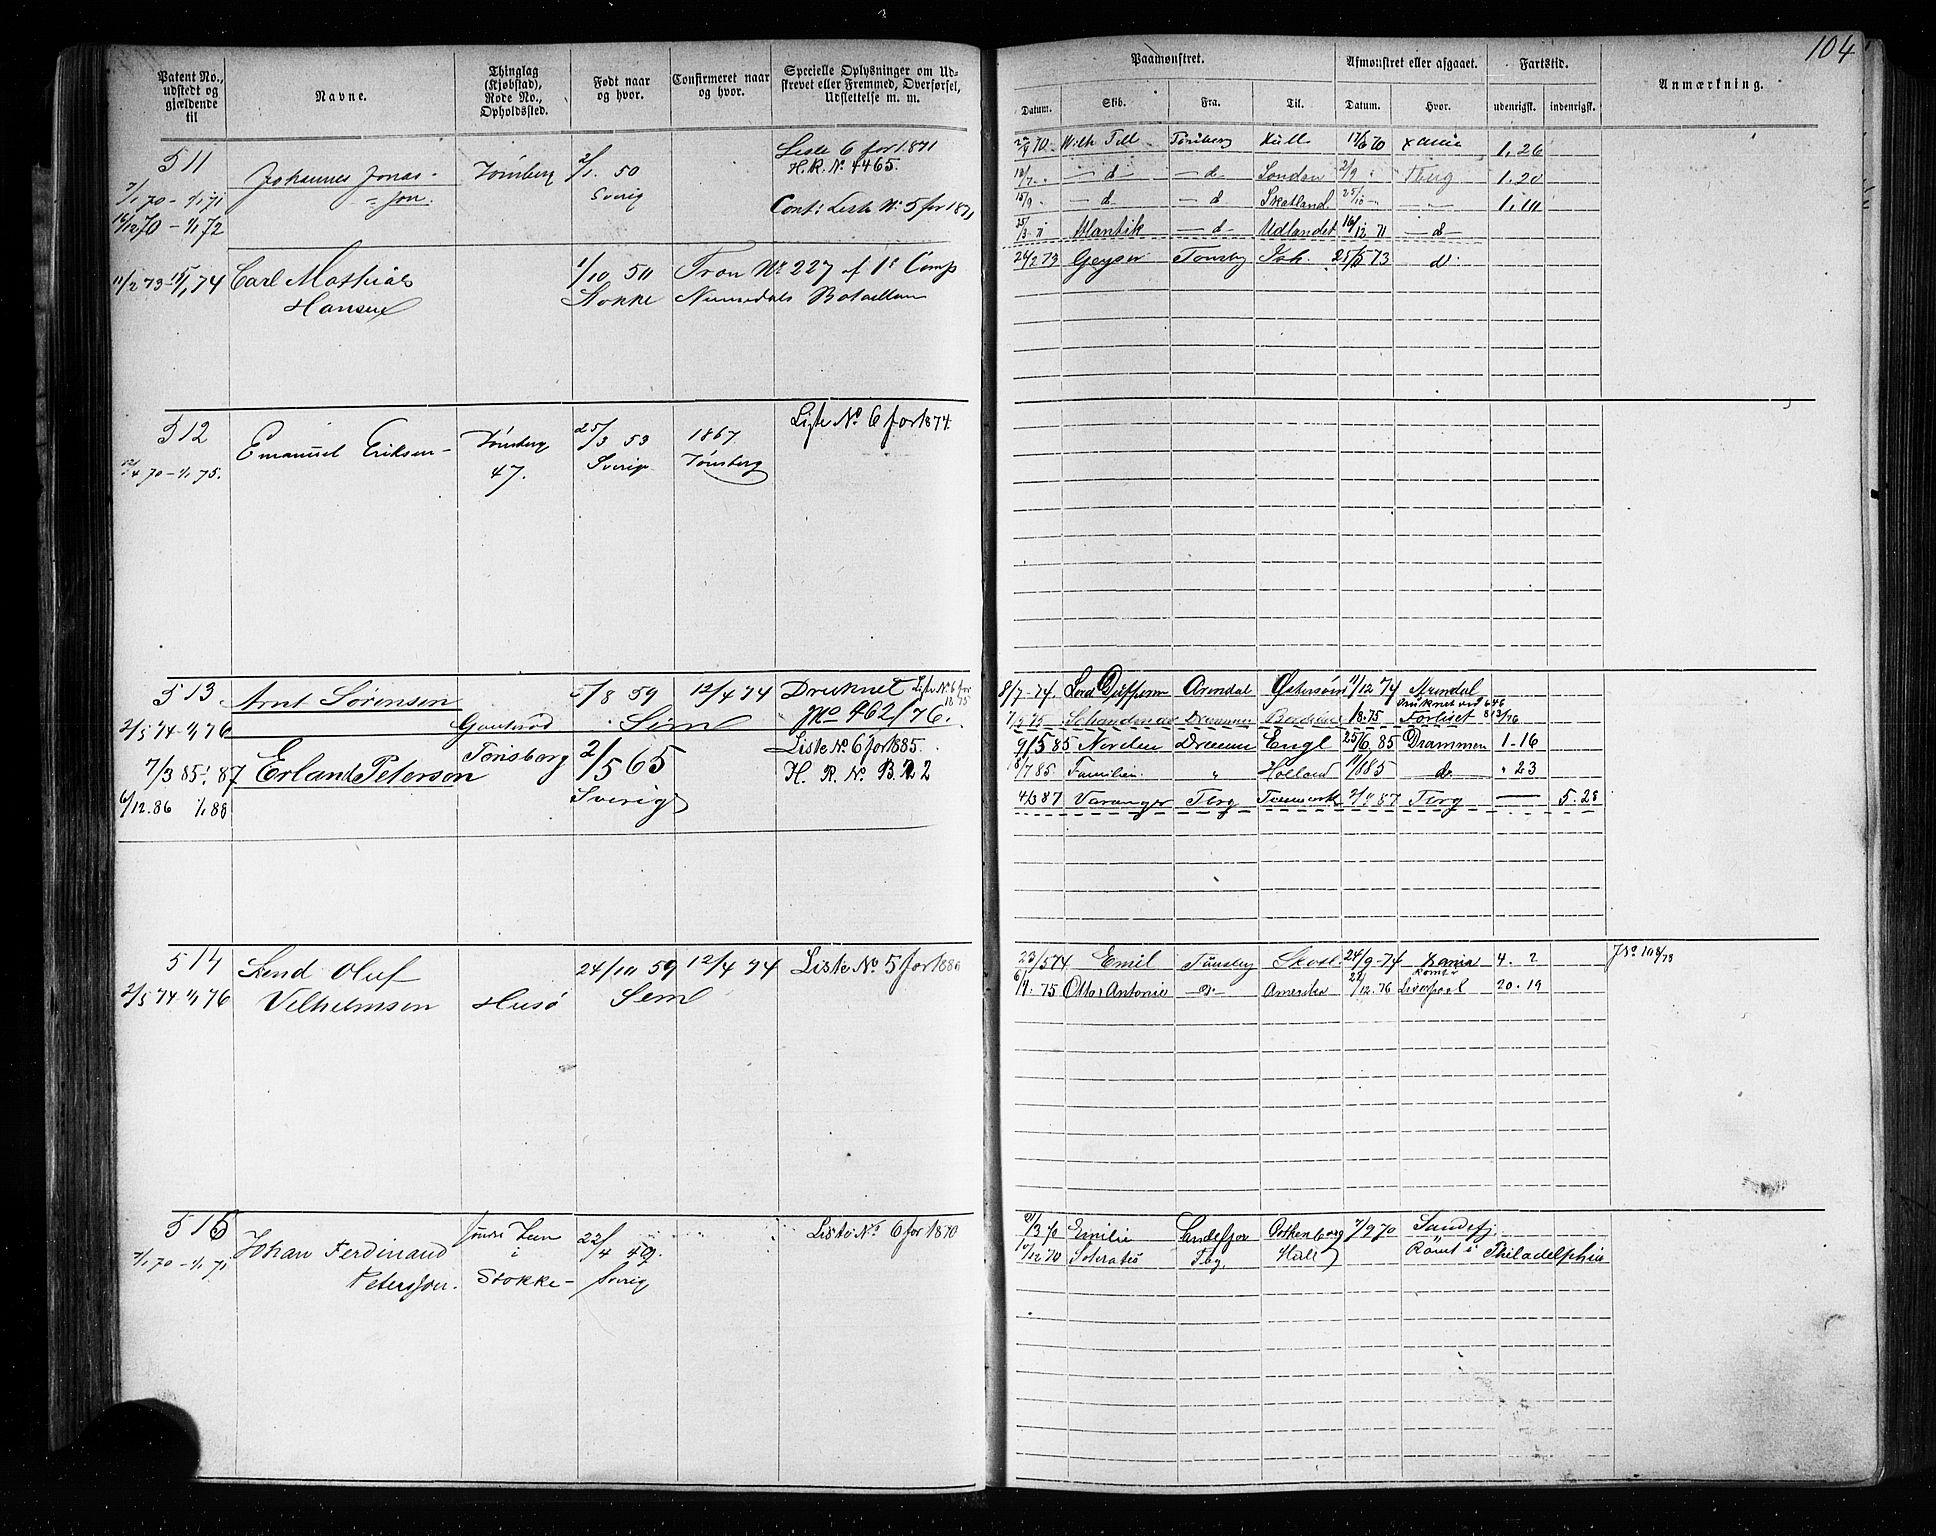 104
Patent No., udstedt og gjældende til
Navne.
Thinglag (Kjøbstad), Rode No., Opholdssted.
Født naar og hvor.
Confirmeret naar og hvor.
Specielle Oplysninger om Udskrevet eller Fremmed, Overførsel, Udslettelse m. m.
Paamønstret.
Afmønstret eller afgaaet.
Fartstid.
Anmærkning.
Datum.
Skib.
Fra.
Til.
Datum.
Hvor.
udenrigsk.
indenrigsk.
511
Johannes Jonas-
son.
Tønsberg
2/1 50
Sverig
Liste 6 for 1871
H.R. No. 4465.
7/1 70 - 1/1 71
16/12 70 - 1/1 72
Cont: Liste No 5 for 1871
Wilh Tell Tønsberg Hull 17/6 70 1,26
12/7 " - d - - d London 2/9 " Tberg 1.20
15/9 " - d - - d Skotland 25/10 - " 1,11
Atlantik - d - Udlandet 16/12 71 - d -
11/2 73 - 1/1 74 Carl Mathias
Hansen
1/10 50
Stokke
Tron No 227 af 1ste Comp
Numedals Bataillon
26/2 73 Geyser Tønsbg 25/5 73 d.
512
Emanuel Eriksen -
Tønsberg
47.
25/3 53
Sverig
1867
Tønsberg
Liste No 6 for 1874.
12/4 70 - 1/1 75.
513
Arnt Sørensen
Gauterød
5/8 59
Sem
12/4 74
Druknet
No 462/76.
Liste No 6 for 1875
2/5 74 - 1/1 76
8/7 - 74. Lord Dufferin Arendal Østersøen 11/12 74 Arendal
Druknet ved
Drammen 18.75 Forliset
7/3 85 - 87 Erland Peterson
Tønsberg
2/5 65
Sverig
Liste No 6 for 1885.
H. R. No B.22
6/12.86 1/1 88
9/5 85 Norden Drammn Engl 25/6 85 Drammen 1.16
8/7 85 Familien " Holland 11/8 85 d. " 23
4/3 87 Varanger Tbrg 87 Tbrg - 5.28
514
Svend Oluf
Vilhelmsen
Husø
24/10 59
Sem
12/4 74
Liste No 5 for 1880
2/5 74 - 1/1 76
23/5 74 Emil Tønsberg Skotl. 24/9 - 74 4. 2
JNo 108/78
6/4. 75 Otto & Antonie d. Amerika 22/12. 76 Rømt Liverpool 20.19
515
Johan Ferdinand
Petersson.
Søndre Leen
i
Stokke -
22/4 49.
Sverig
Liste No 6 for 1870
7/1 70 - 1/1 71
Emilie Sandefjor Gothenborg 7/9 70 Sandefj
12/12 70 Sokrates Tbg Rømt i Philadelphia